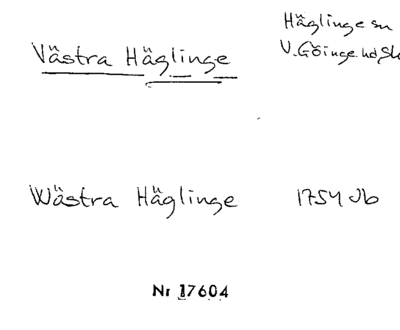 Västra Häglinge
Häglinge sn
V. Göinge hd Sk
Wästra Häglinge
1754 Jb
Nr 17604